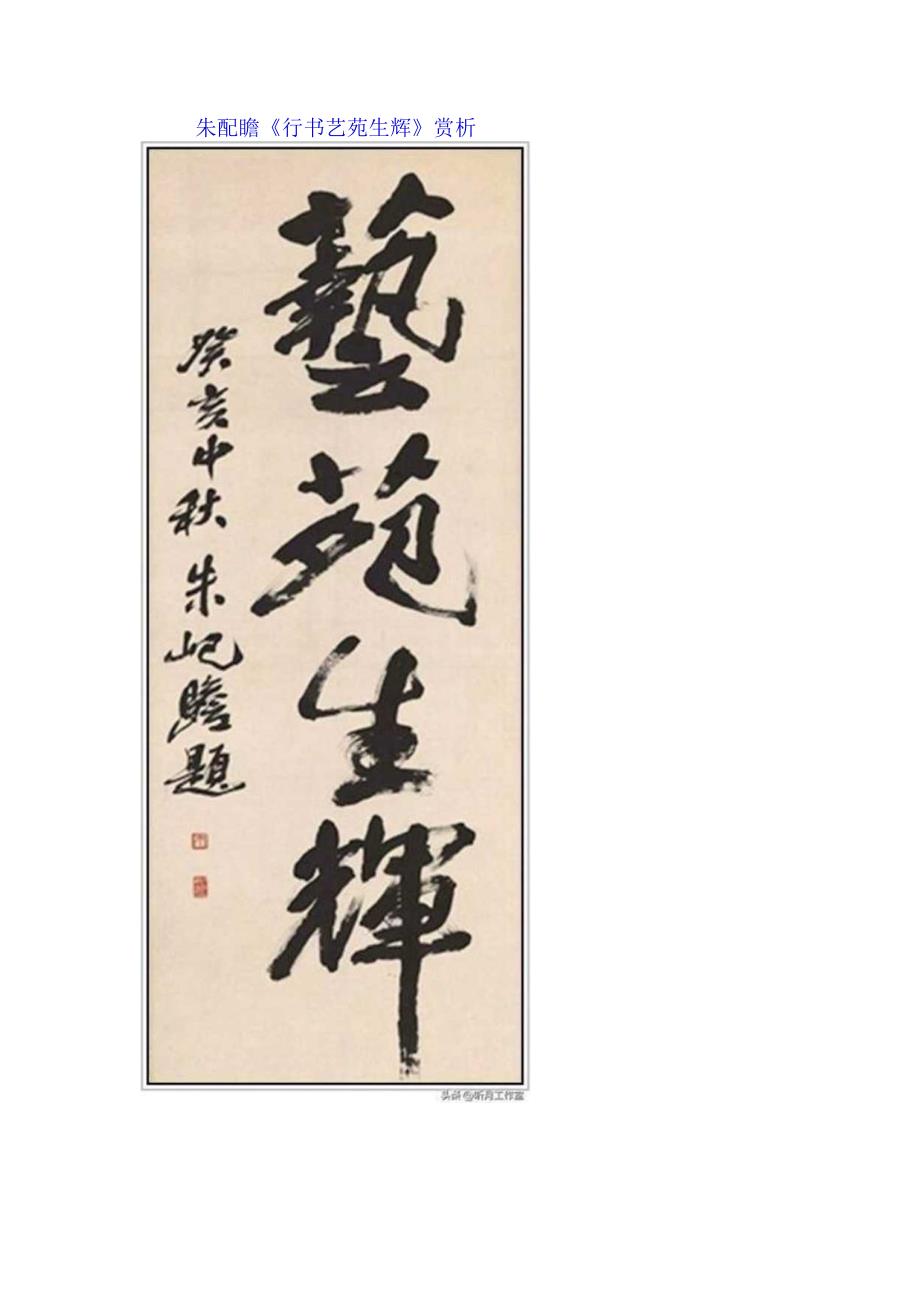 朱配瞻《行书艺苑生辉》赏析
藝苑生輝
癸亥中秋朱屺瞻題
头条@昕月工作室